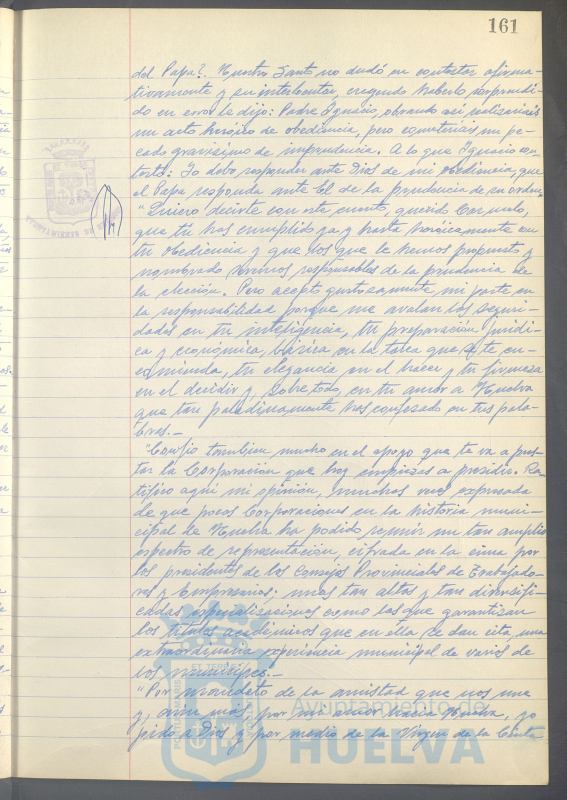 161
del Papa?. Nuestro Santo no dudó en contestar afirma-
tivamente y su interlocutor, creyendo haberlo sorprendi-
do en error le dijo: Padre Ignacio, obrando así realizaríais
un acto heroico de obediencia, pero cometeríais un pe-
cado gravísimo de imprudencia. A lo que Ignacio con-
testó: Yo debo responder ante Dios de mi obediencia, que
el Papa responda ante Él de la prudencia de su orden."
"Quiero decirte con este cuento, querido
que tú has cumplido ya y hasta heroicamente con
tu obediencia y que los que te hemos propuesto y
nombrado somos responsables de la prudencia de
la elección. Pero acepto gustosamente mi parte en
la responsabilidad porque me avalan las seguri-
dades en tu inteligencia, tu preparación jurídi-
ca y económica, básica en la tarea que se te en-
comienda, tu elegancia en el hacer y tu firmeza
en el decidir y, sobre todo, en tu amor a Huelva
que tan paladinamente has confesado en tus pala-
bras.-
"Confío también mucho en el apoyo que te va a pres-
tar la Corporación que hoy empiezas a presidir. Ra-
tifico aquí mi opinión, muchas veces expresada
de que pocas Corporaciones en la historia muni-
cipal de Huelva ha podido reunir un tan amplio
espectro de representación, cifrada en la cima por
los presidentes de los Consejos Provinciales de Trabajado-
res y Empresarios; unas tan altas y tan diversifi-
cadas especializaciones como las que garantizan
los títulos académicos que en ella se dan cita, una
extraordinaria experiencia municipal de varios de
los munícipes.-
"Por mandato de la amistad que nos une
y, aún más, por mi amor hacia Huelva, yo
pido a Dios y por medio de la Virgen de la Cinta
Ayuntamiento de
HUELVA